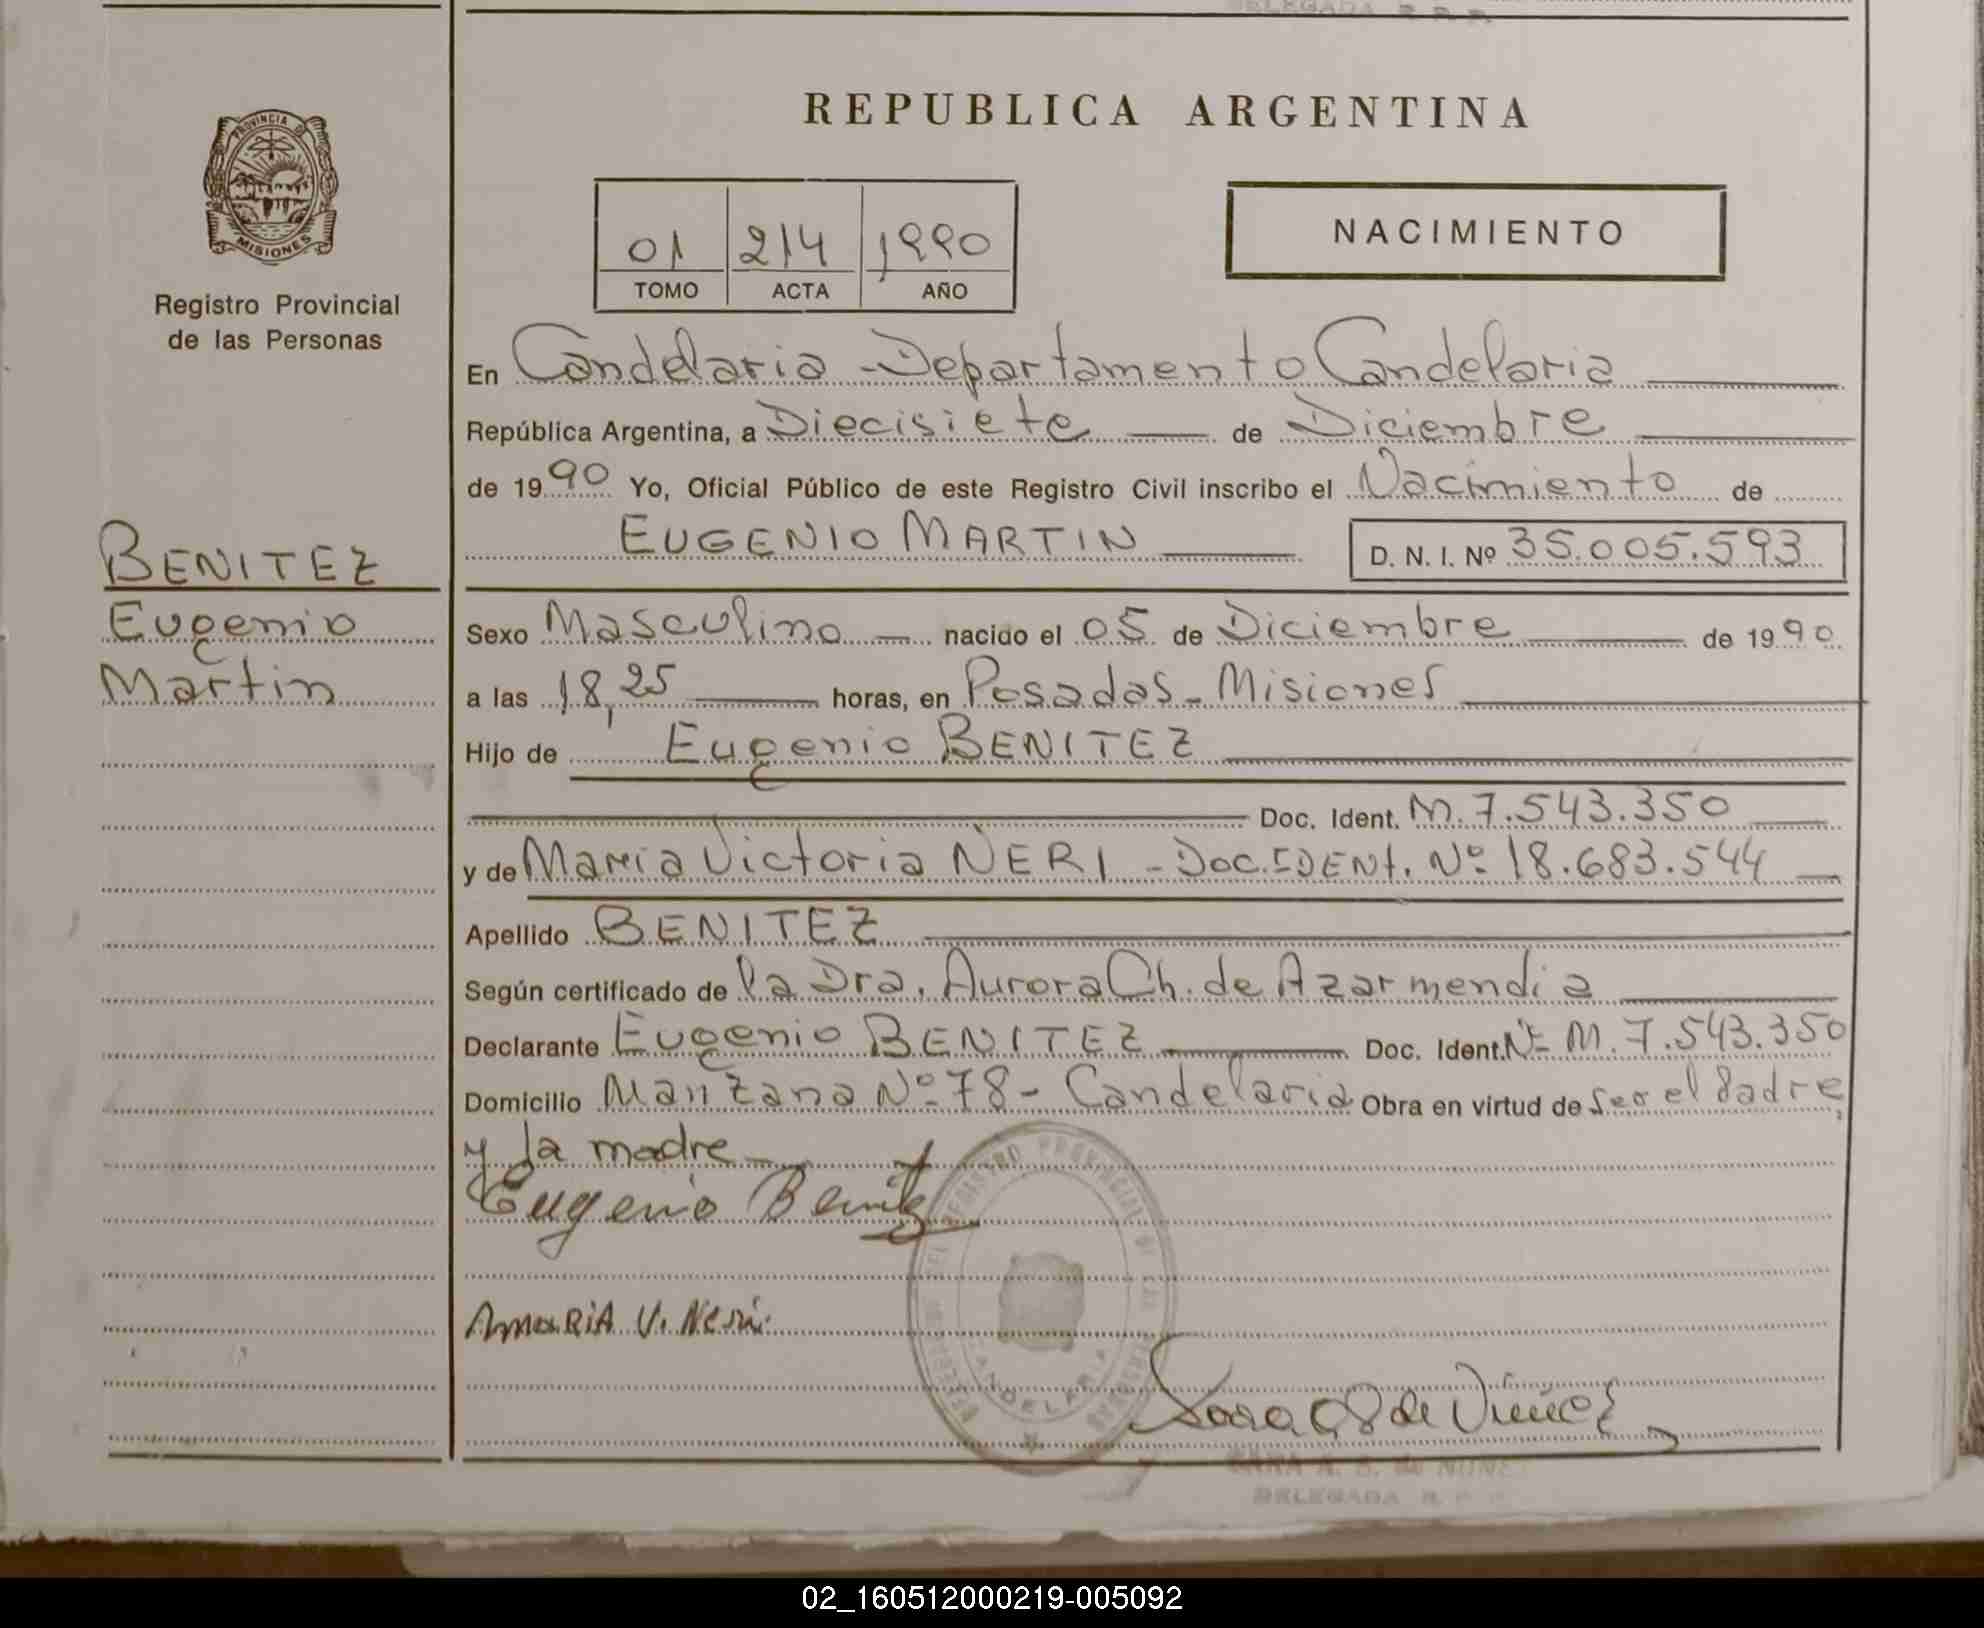 DELEGADA R. P. P.
REPUBLICA ARGENTINA
PROVINCIA DE
MISIONES
Registro Provincial
de las Personas
01 214 1990
TOMO ACTA AÑO
NACIMIENTO
En Candelaria - Departamento Candelaria
República Argentina, a Diecisiete de Diciembre
de 1990 Yo, Oficial Público de este Registro Civil inscribo el Nacimiento de
EUGENIO MARTIN D. N. I. Nº 35.005.593
BENITEZ
Eugenio
Martin
Sexo Masculino nacido el 05 de Diciembre de 1990
a las 18,25 horas, en Posadas - Misiones
Hijo de Eugenio BENITEZ
Doc. Ident. M. 7.543.350
y de Maria Victoria NERI - Doc. IDENT. Nº 18.683.544
Apellido BENITEZ
Según certificado de la Dra. Aurora Ch. de Azarmendia
Declarante Eugenio BENITEZ Doc. Ident. Nº M. 7.543.350
Domicilio Manzana Nº 78 - Candelaria Obra en virtud de ser el Padre
y la madre
Eugenio Benitez
MARIA V. Neri
REGISTRO PROVINCIAL DE LAS PERSONAS
CANDELARIA
SARA A. S. de NUÑEZ
DELEGADA R. P. P.
02_160512000219-005092